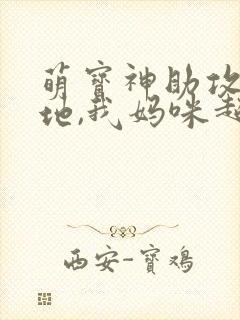 萌寶神助攻
地,我媽咪超
西安-寶鴻